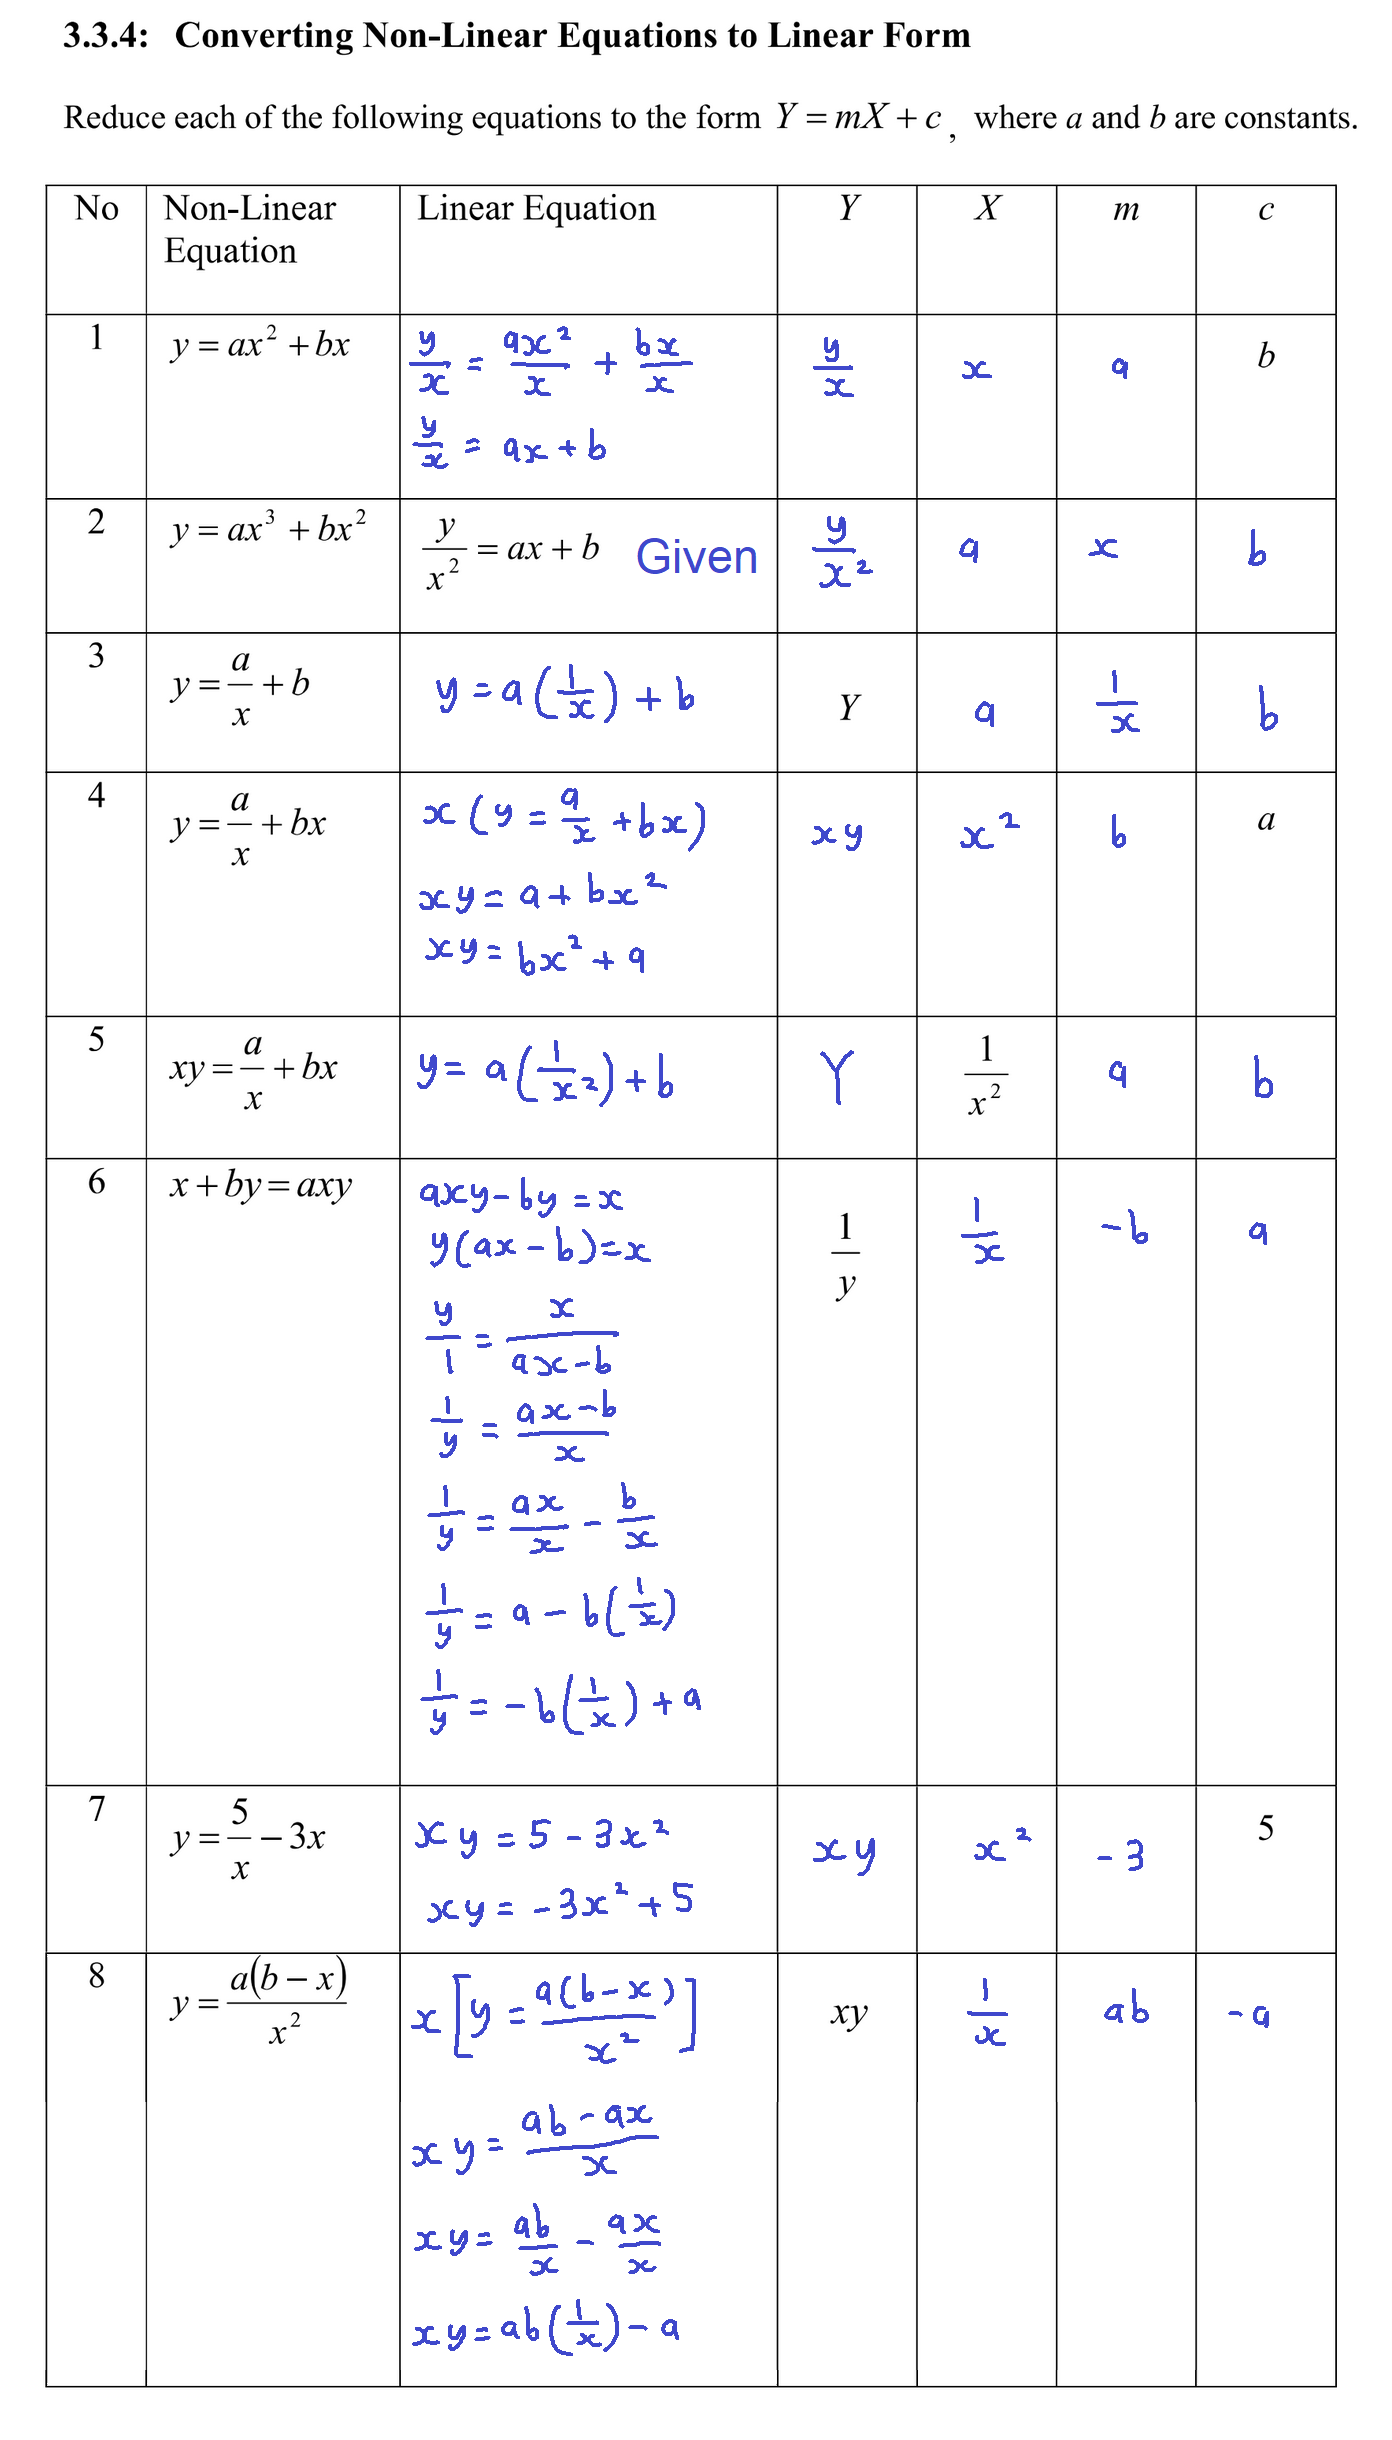 3.3.4: Converting Non-Linear Equations to Linear Form
Reduce each of the following equations to the form Y = mX + c, where a and b are constants.
No Non-Linear Equation Linear Equation Y X m c
1 y = ax² + bx y/x = ax²/x + bx/x y/x x a b
y/x = ax + b
2 y = ax³ + bx² y/x² = ax + b Given y/x² a x b
3 y = a/x + b y = a(1/x) + b Y a 1/x b
4 y = a/x + bx x(y = a/x + bx) xy x² b a
xy = a + bx²
xy = bx² + a
5 xy = a/x + bx y = a(1/x²) + b Y 1/x² a b
6 x + by = axy axy - by = x 1/y 1/x -b a
y(ax - b) = x
y/1 = x/(ax - b)
1/y = (ax - b)/x
1/y = ax/x - b/x
1/y = a - b(1/x)
1/y = -b(1/x) + a
7 y = 5/x - 3x xy = 5 - 3x² xy x² -3 5
xy = -3x² + 5
8 y = a(b - x)/x² x[y = a(b - x)/x²] xy 1/x ab -a
xy = (ab - ax)/x
xy = ab/x - ax/x
xy = ab(1/x) - a